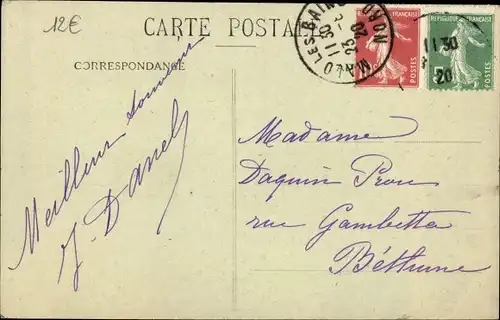 12€
CARTE POSTALE
CORRESPONDANCE
Meilleur souvenir
J. Danel
MALO LES BAINS
NORD
11 30
23 - 2
20
REPUBLIQUE FRANÇAISE
POSTES
REPUBLIQUE FRANÇAISE
POSTES
11 30
20
Madame
Daquin Prou
rue Gambetta
Béthune